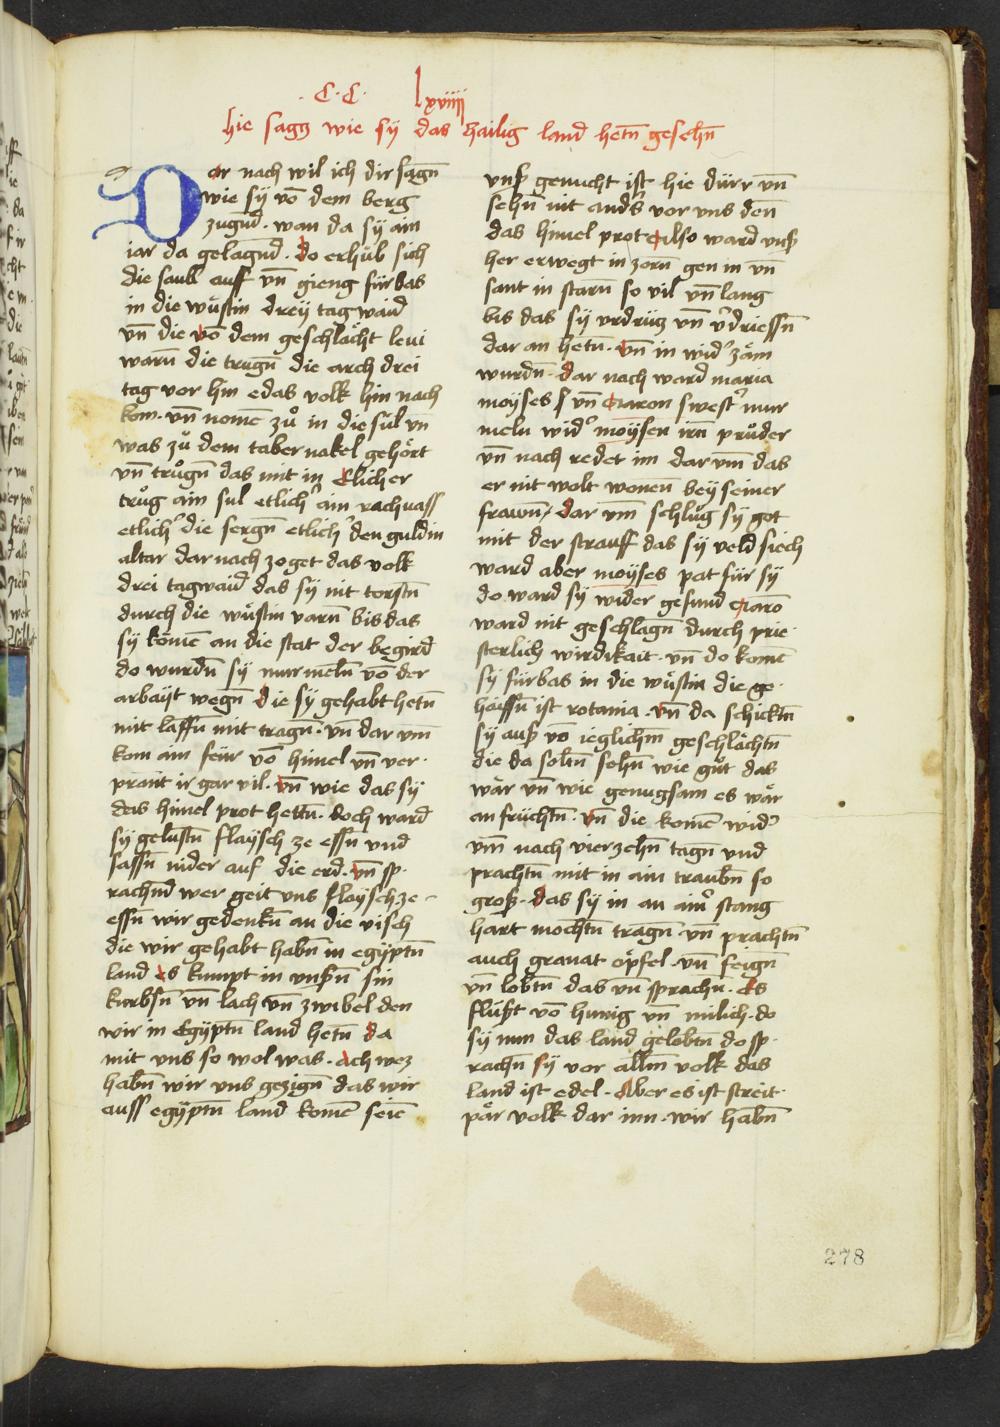 · C · C · lxviiij
hie sagt wie sÿ das hailig land hetn̄ gesehn̄
Dar nach wil ich dir sagn̄
wie sÿ vō dem berg
zugnd̄ · wan da sÿ ain
iar da gelagnd̄ · do erhůb sich
die saul auff vn̄ gieng fürbas
in die wůstin dreÿ tag waid
vn̄ die vō dem geschlächt leui
warn̄ die trůgn̄ die arch drei
tag vor hin e das volk hin nach
kom · vn̄ nomē zů in die sül vn̄
was zů dem tabernakel gehört
vn̄ trůgn̄ das mit in Etlicher
trůg ain sul etlich᷑ ain rachuass
etlich᷑ die sergn̄ etlich᷑ den guldin
altar dar nach zoget das volk
drei tagwaid̄ das sÿ nit torstn̄
durch die wůstin varn̄ bis das
sÿ kömē an die stat der begird̄
do wurdn̄ sÿ murmeln̄ vō der
arbaÿt wegn̄ die sÿ gehabt hetn̄
mit lassn̄ mit tragn̄ · vn̄ dar vm̄
kom ain feür vō himel vn̄ ver ·
prant ir gar vil · vn̄ wie das sÿ
das himel prot hettn̄ · doch ward
sÿ gelustn̄ flaÿsch ze essn̄ vnd
sassn̄ nider auf die erd · vn̄ sp ·
rachnd̄ wer geit vns flaÿsch ze
essn̄ wir gedenkn̄ an die visch
die wir gehabt habn̄ in egÿptn̄
land es kumpt in vnsn̄ sin
kürbsn̄ vn̄ lach vn̄ zwibel den
wir in Egÿptn̄ land hetn̄ da
mit vns so wol was · ach wez
habn̄ wir vns gezign̄ das wir
auss egÿptn̄ land komē seiē
vnß gemücht ist hie dürr vn̄
sehn̄ nit ands᷑ vor vns den̄
das himel prot Also ward vnß
her erwegt in zorn̄ gen in vn̄
sant in starn̄ so vil vn̄ lang
bis das sÿ vrdrüz vn̄ v᷑driessn̄
dar an hetn̄ · vn̄ in wid᷑ zäm
wurdn̄ · dar nach ward maria
moÿses s vn̄ Aaron swest᷑ mur
meln wid᷑ moÿsen irn̄ průder
vn̄ nach redet im dar vm̄ das
er nit wolt wonen̄ beÿ seiner
frawn̄ / dar vm schlůg sÿ got
mit der strauff das sÿ veld siech
ward aber moÿses pat für sÿ
do ward sÿ wider gesund Aarō
ward nit geschlagn̄ durch prie ·
sterlich wirdikait · vn̄ do komē
sÿ fürbas in die wůstin die ge ·
haissn̄ ist rotania · vn̄ da schicktn̄
sÿ auß vō ieglichm̄ geschlächtn̄
die da soltn̄ sehn̄ wie gůt das
wär vn̄ wie genugsam es wär
an früchtn̄ · vn̄ die komē wid᷑
vm̄ nach vierzehn̄ tagn̄ vnd
prachtn̄ mit in ain traubn̄ so
groß · das sÿ in an ain᷑ stang
hart mochtn̄ tragn̄ vn̄ prachtn̄
auch granat öpfel · vn̄ feign̄
vn̄ lobtn̄ das vn̄ sprachn̄ · Es
flüßt vō hunig vn̄ milich · do
sÿ nun das land gelobtn̄ do sp ·
rachn̄ sÿ vor allm̄ volk das
land ist edel · Aber es ist streit ·
pär volk dar inn · wir habn̄
278